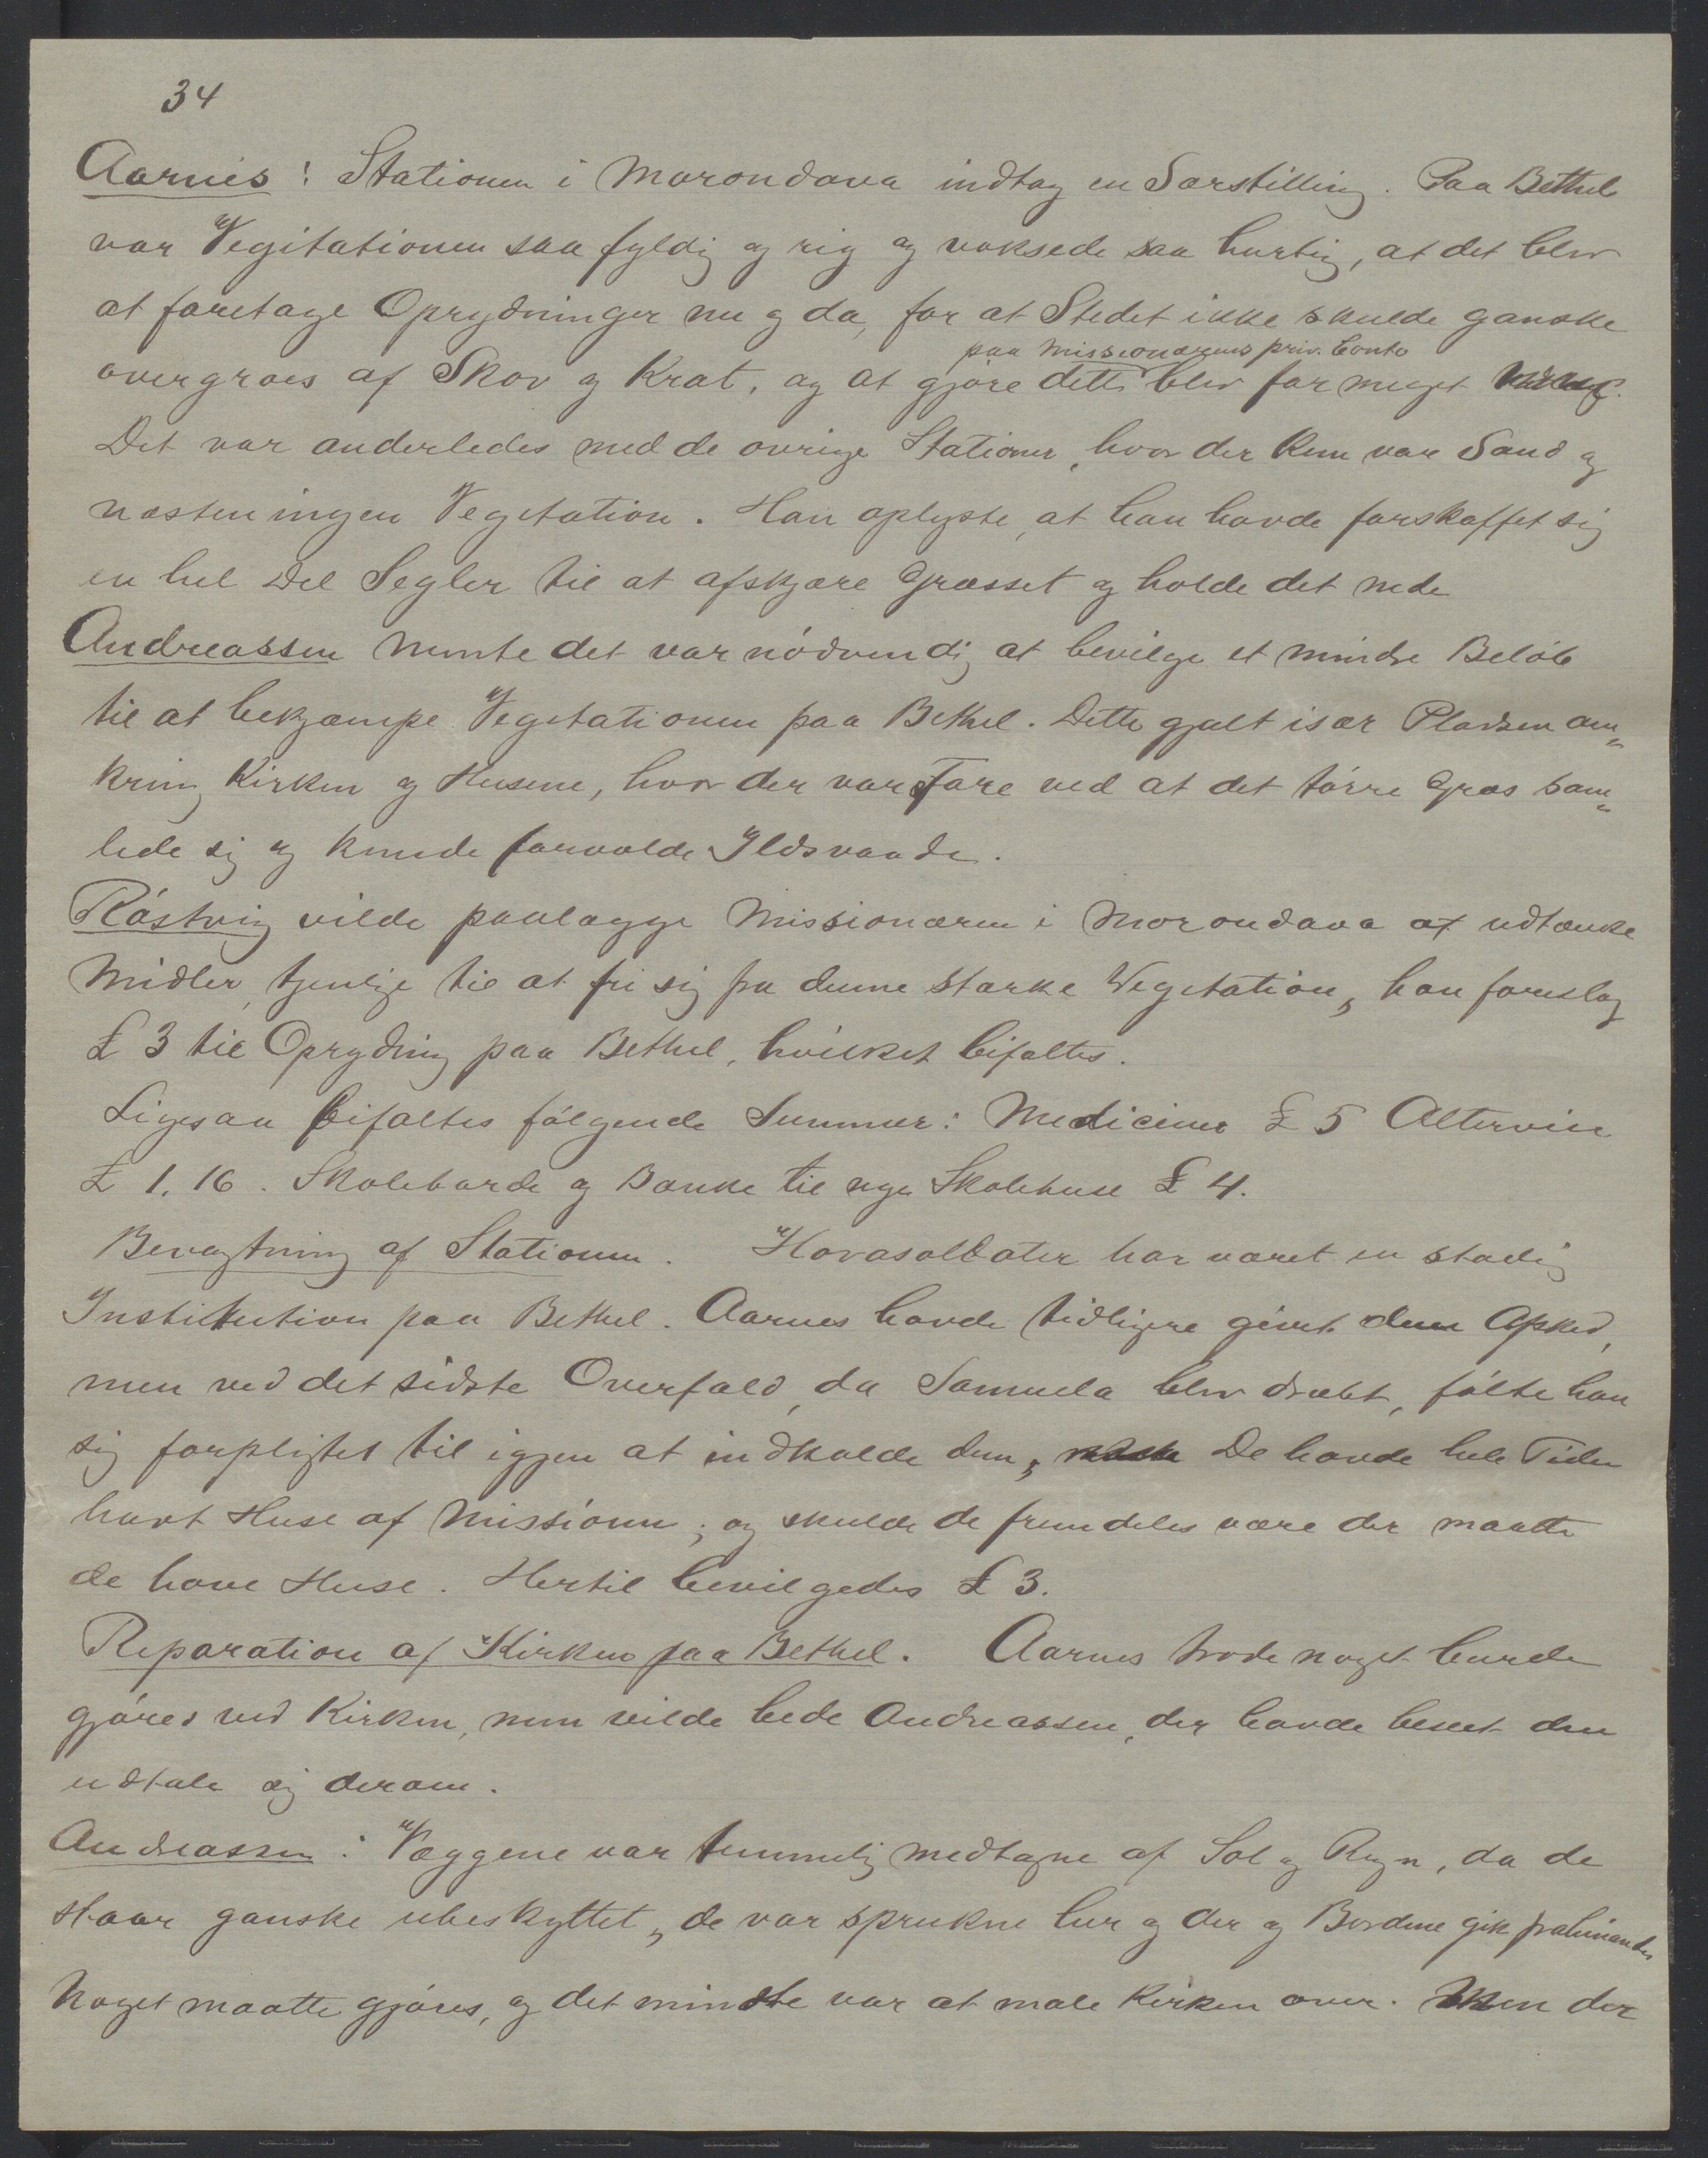 34
Aarnes: Stationen i Morondava indtog en Særstilling. Paa Bethel
var Vegitationen saa fyldig og rig og voksede saa hurtig, at det blev
at foretage Oprydninger nu og da, for at Stedet ikke skulde ganske
paa Missionærens priv. Conto
overgroes af Skov og Krat, og at gjøre dette blev for meget
Det var anderledes med de øvrige Stationer, hvor der kun var Sand og
næsten ingen Vegetation. Han oplyste, at han havde forskaffet sig
en hel Del Segler til at afskjære Græsset og holde det nede
Andreassen mente det var nødvendig at bevilge et mindre Beløb
til at bekjæmpe Vegetationen paa Bethel. Dette gjalt især Pladsen om„
kring Kirken og Husene, hvor der var Fare ved at det tørre Græs sam„
lede sig og kunde forvolde Ildsvaade.
Røstvig vilde paalægge Missionæren i Morondava at udtænke
Midler, tjenlige til at fri sig fra denne stærke Vegetation, han foreslog
£ 3 til Oprydning paa Bethel, hvilket bifaltes.
Ligesaa bifaltes følgende Summer: Medicine £ 5 Altervin
£ 1.16. Skoleborde og Bænke til nye Skolehuse £ 4.
Bevogtning af Stationen. Hovasoldater har været en stadig
Institution paa Bethel. Aarnes havde tidligere givet dem Afsked,
men ved det sidste Overfald, da Samuela blev dræbt, følte han
sig forpligtet til igjen at indkalde dem, De havde hele Tiden
havt Huse af Missionen; og skulde de fremdeles være der maatte
de have Huse. Hertil bevilgedes £ 3.
Reparation af Kirken paa Bethel. Aarnes trode noget burde
gjøres ved Kirken, men vilde bede Andreassen, der havde beseet den
udtale sig derom.
Andreassen: Væggene var temmelig medtagne af Sol og Regn, da de
staar ganske ubeskyttet, de var sprukne her og der og Bordene gik frahinanden
Noget maatte gjøres, og det mindste var at male Kirken over. Men der